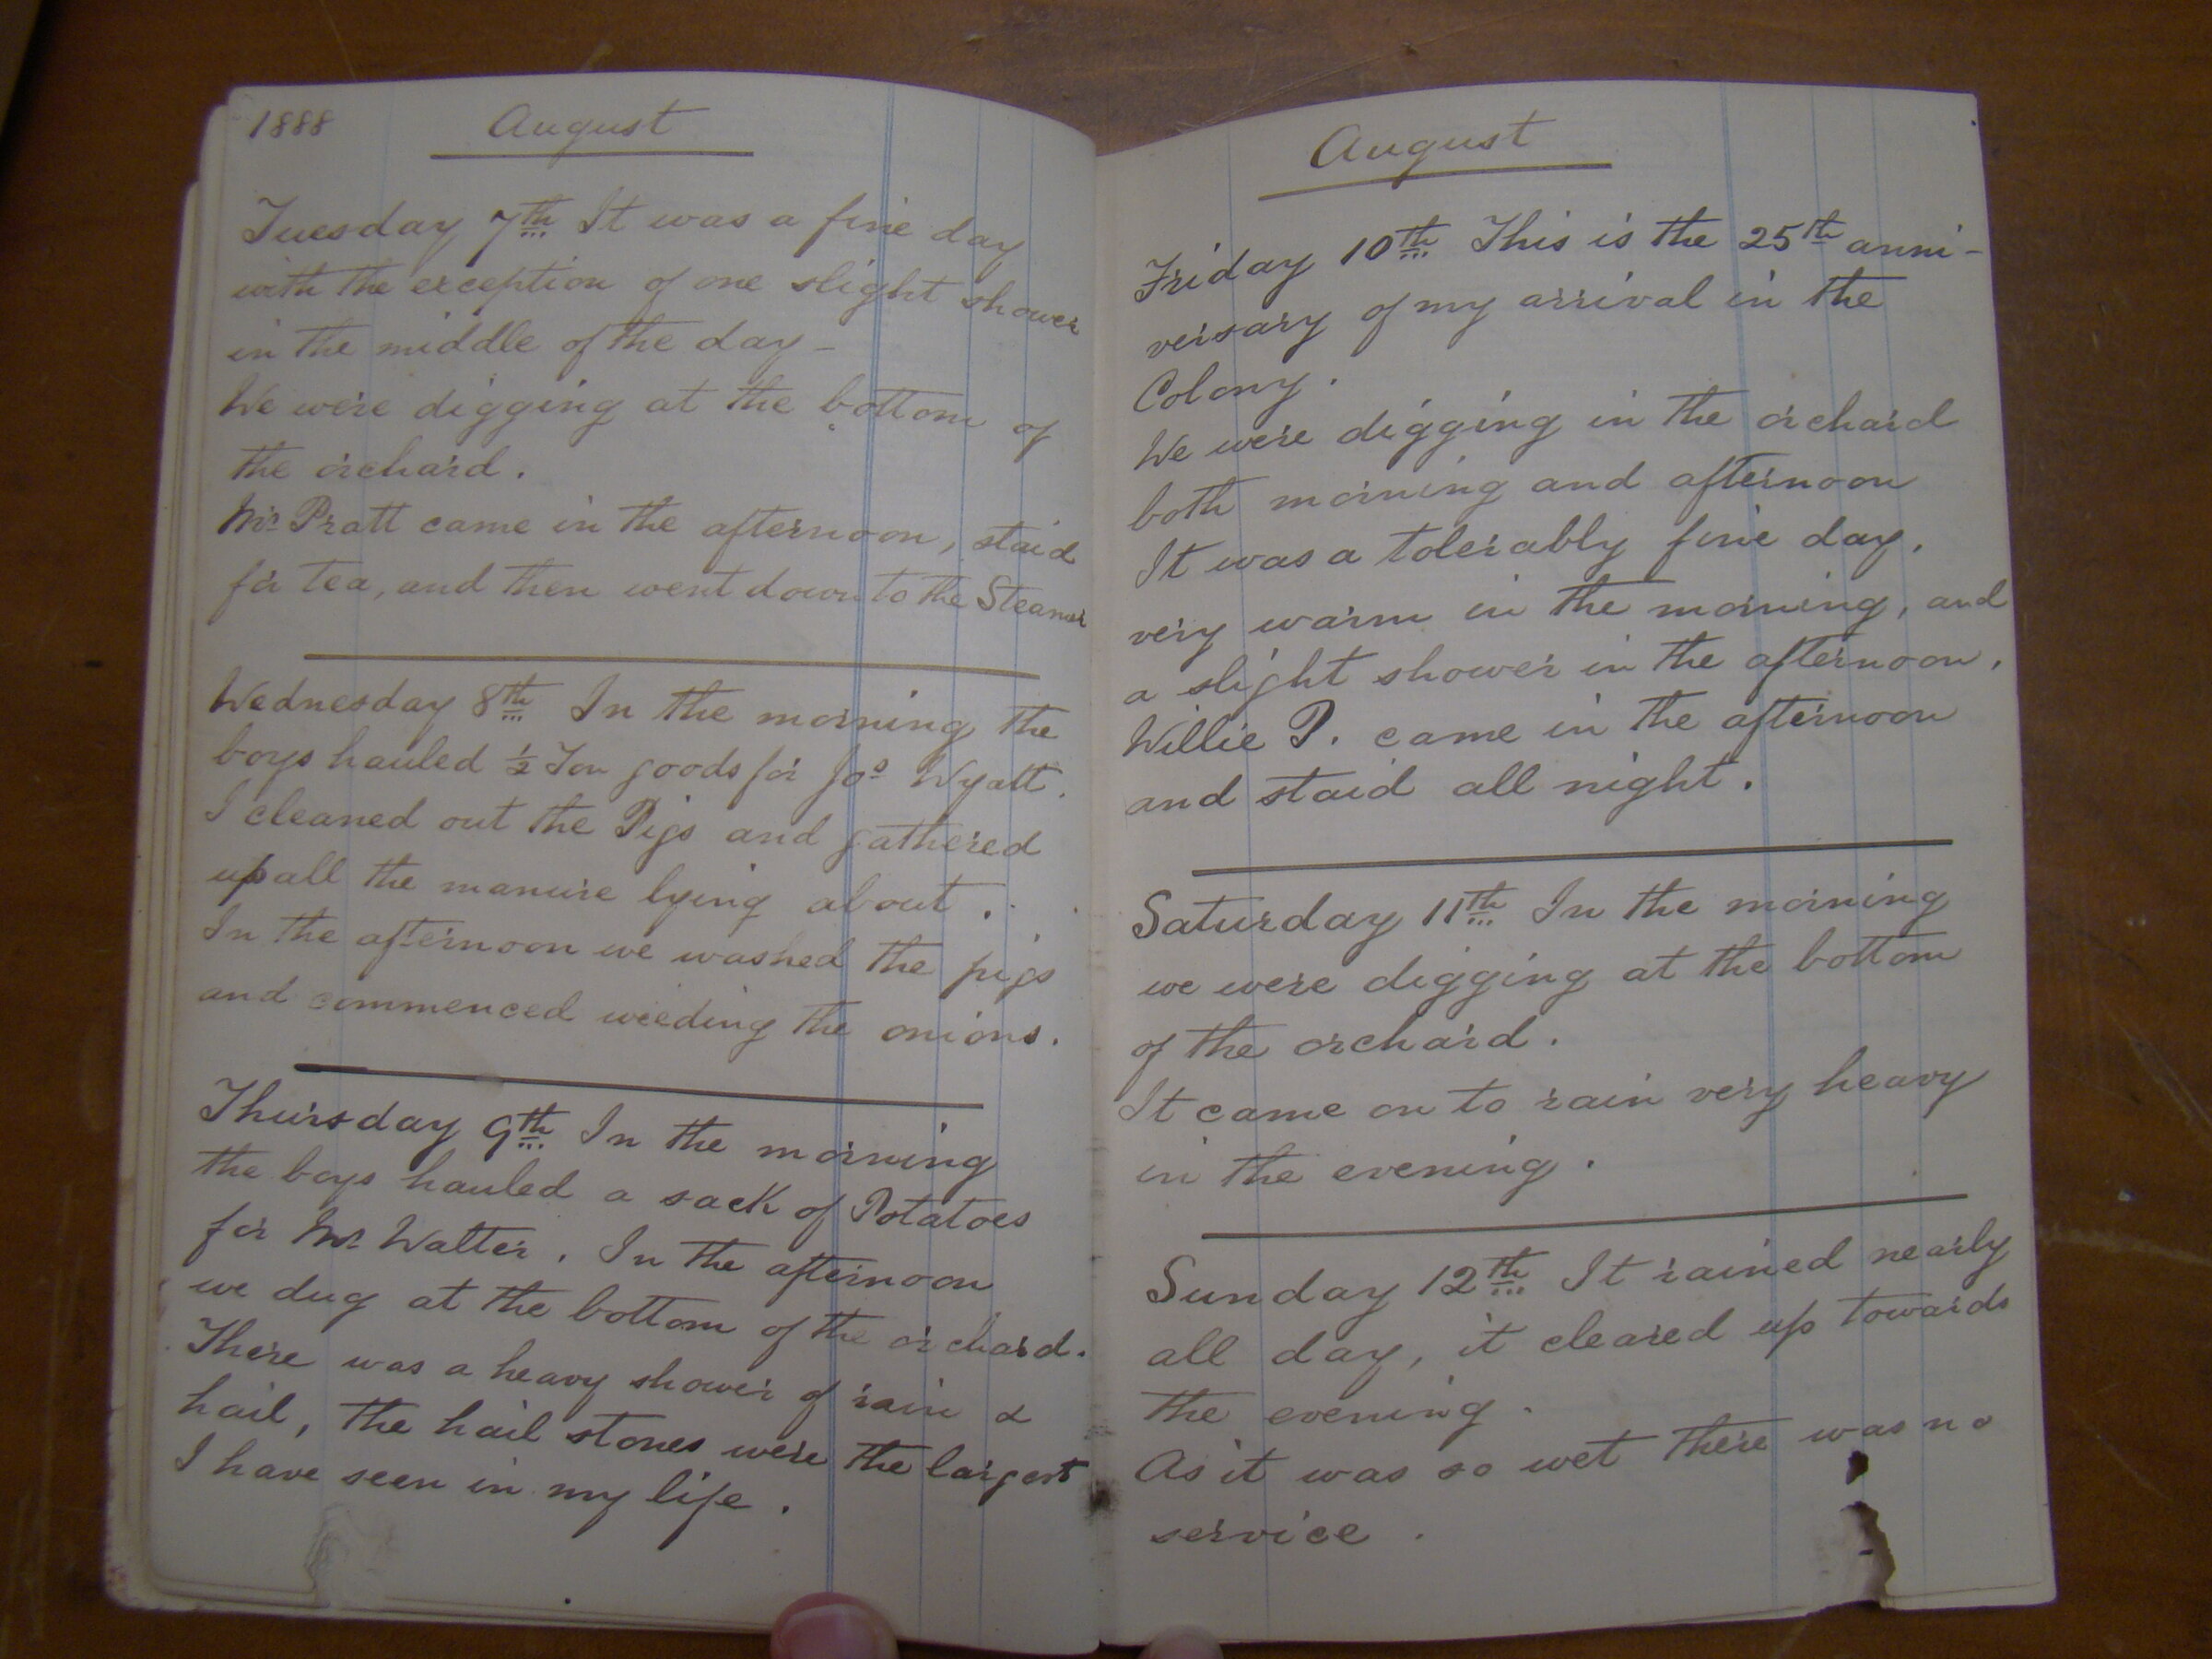 1888 August
Tuesday 7th It was a fine day
with the exception of one slight shower
in the middle of the day -
We were digging at the bottom of
the orchard.
Mr Pratt came in the afternoon, staid
for tea, and then went down to the Steamer
Wednesday 8th In the morning the
boys hauled ½ Ton goods for Jos Wyatt.
I cleaned out the Pigs and gathered
up all the manure lying about.
In the afternoon we washed the pigs
and commenced weeding the onions.
Thursday 9th In the morning
the boys hauled a sack of Potatoes
for Mr Walter. In the afternoon
we dug at the bottom of the orchard.
There was a heavy shower of rain &
hail, the hail stones were the largest
I have seen in my life.
August
Friday 10th This is the 25th anni-
versary of my arrival in the
Colony.
We were digging in the orchard
both morning and afternoon
It was a tolerably fine day,
very warm in the morning, and
a slight shower in the afternoon.
Willie P. came in the afternoon
and staid all night.
Saturday 11th In the morning
we were digging at the bottom
of the orchard.
It came on to rain very heavy
in the evening.
Sunday 12th It rained nearly
all day, it cleared up towards
the evening.
As it was so wet there was no
service.